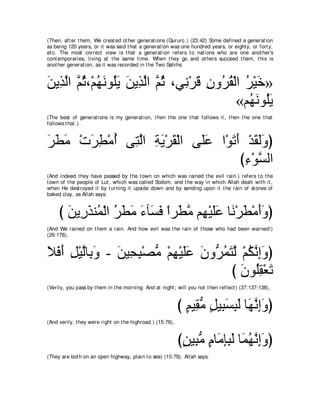 (Then, after them, We created other generations (Qurun).) (23:42) Some defined a generation
as being 120 years, or it was said that a generation was one hundred years, or eighty, or forty,
etc. The most correct view is that a generation refers to nations who are one another's
contemporaries, living at the same time. When they go and others succeed them, this is
another generation, as it was recorded in the Two Sahihs:
«خَيْرُ الْقُرُونِ قَرْنِي، ثُمَّ الَّذِينَ يَلُونَهُمْ،ثُمَّ الَّذِينَ
يَلُونَهُم»
(The best of generations is my generation, then the one that follows it, then the one that
follows that.)
(وَلَقَدْ أَتَوْا عَلَى الْقَرْيَةِ الَّتِى أُمْطِرَتْ مَطَرَ
السَّوْءِ)
(And indeed they have passed by the town on which was rained the evil rain.) refers to the
town of the people of Lut, which was called Sodom, and the way in which Allah dealt with it,
when He destroyed it by turning it upside down and by sending upon it the rain of stones of
baked clay, as Allah says:
(وَأَمْطَرْنَا عَلَيْهِم مَّطَرًا فَسَآءَ مَطَرُ الْمُنذَرِينَ )
(And We rained on them a rain. And how evil was the rain of those who had been warned!)
(26:176),
(وَإِنَّكُمْ لَّتَمُرُّونَ عَلَيْهِمْ مُّصْبِحِينَ - وَبِالَّيْلِ أَفَلاَ
تَعْقِلُونَ )
(Verily, you pass by them in the morning. And at night; will you not then reflect) (37:137-138),
(وَإِنَّهَا لَبِسَبِيلٍ مُّقِيمٍ )
(And verily, they were right on the highroad.) (15:76),
(وَإِنَّهُمَا لَبِإِمَامٍ مُّبِينٍ)
(They are both on an open highway, plain to see) (15:79). Allah says: